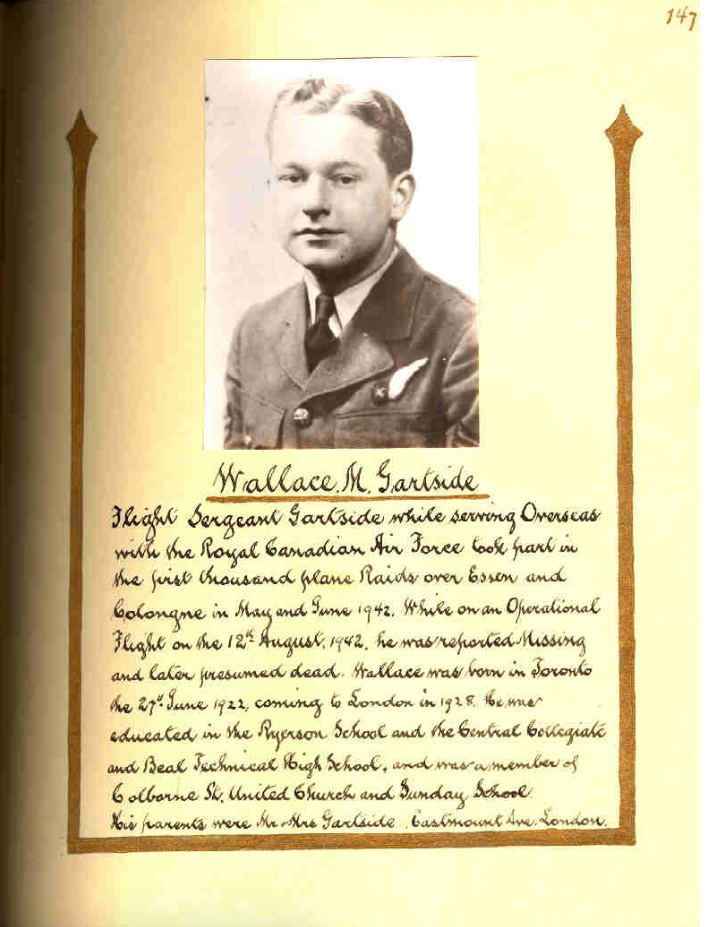 147
Wallace. M. Gartside
Flight Sergeant Gartside while serving Overseas
with the Royal Canadian Air Force took part in
the first thousand plane Raids over Essen and
Colongne in May and June 1942. While on an Operational
Flight on the 12th August, 1942, he was reported Missing
and later presumed dead. Wallace was born in Toronto
the 27th June 1922, coming to London in 1928. He was
educated in the Ryerson School and the Central Collegiate
and Beal Technical High School, and was a member of
Colborne St. United Church and Sunday School
His parents were Mr & Mrs Gartside. Eastmount Ave. London.